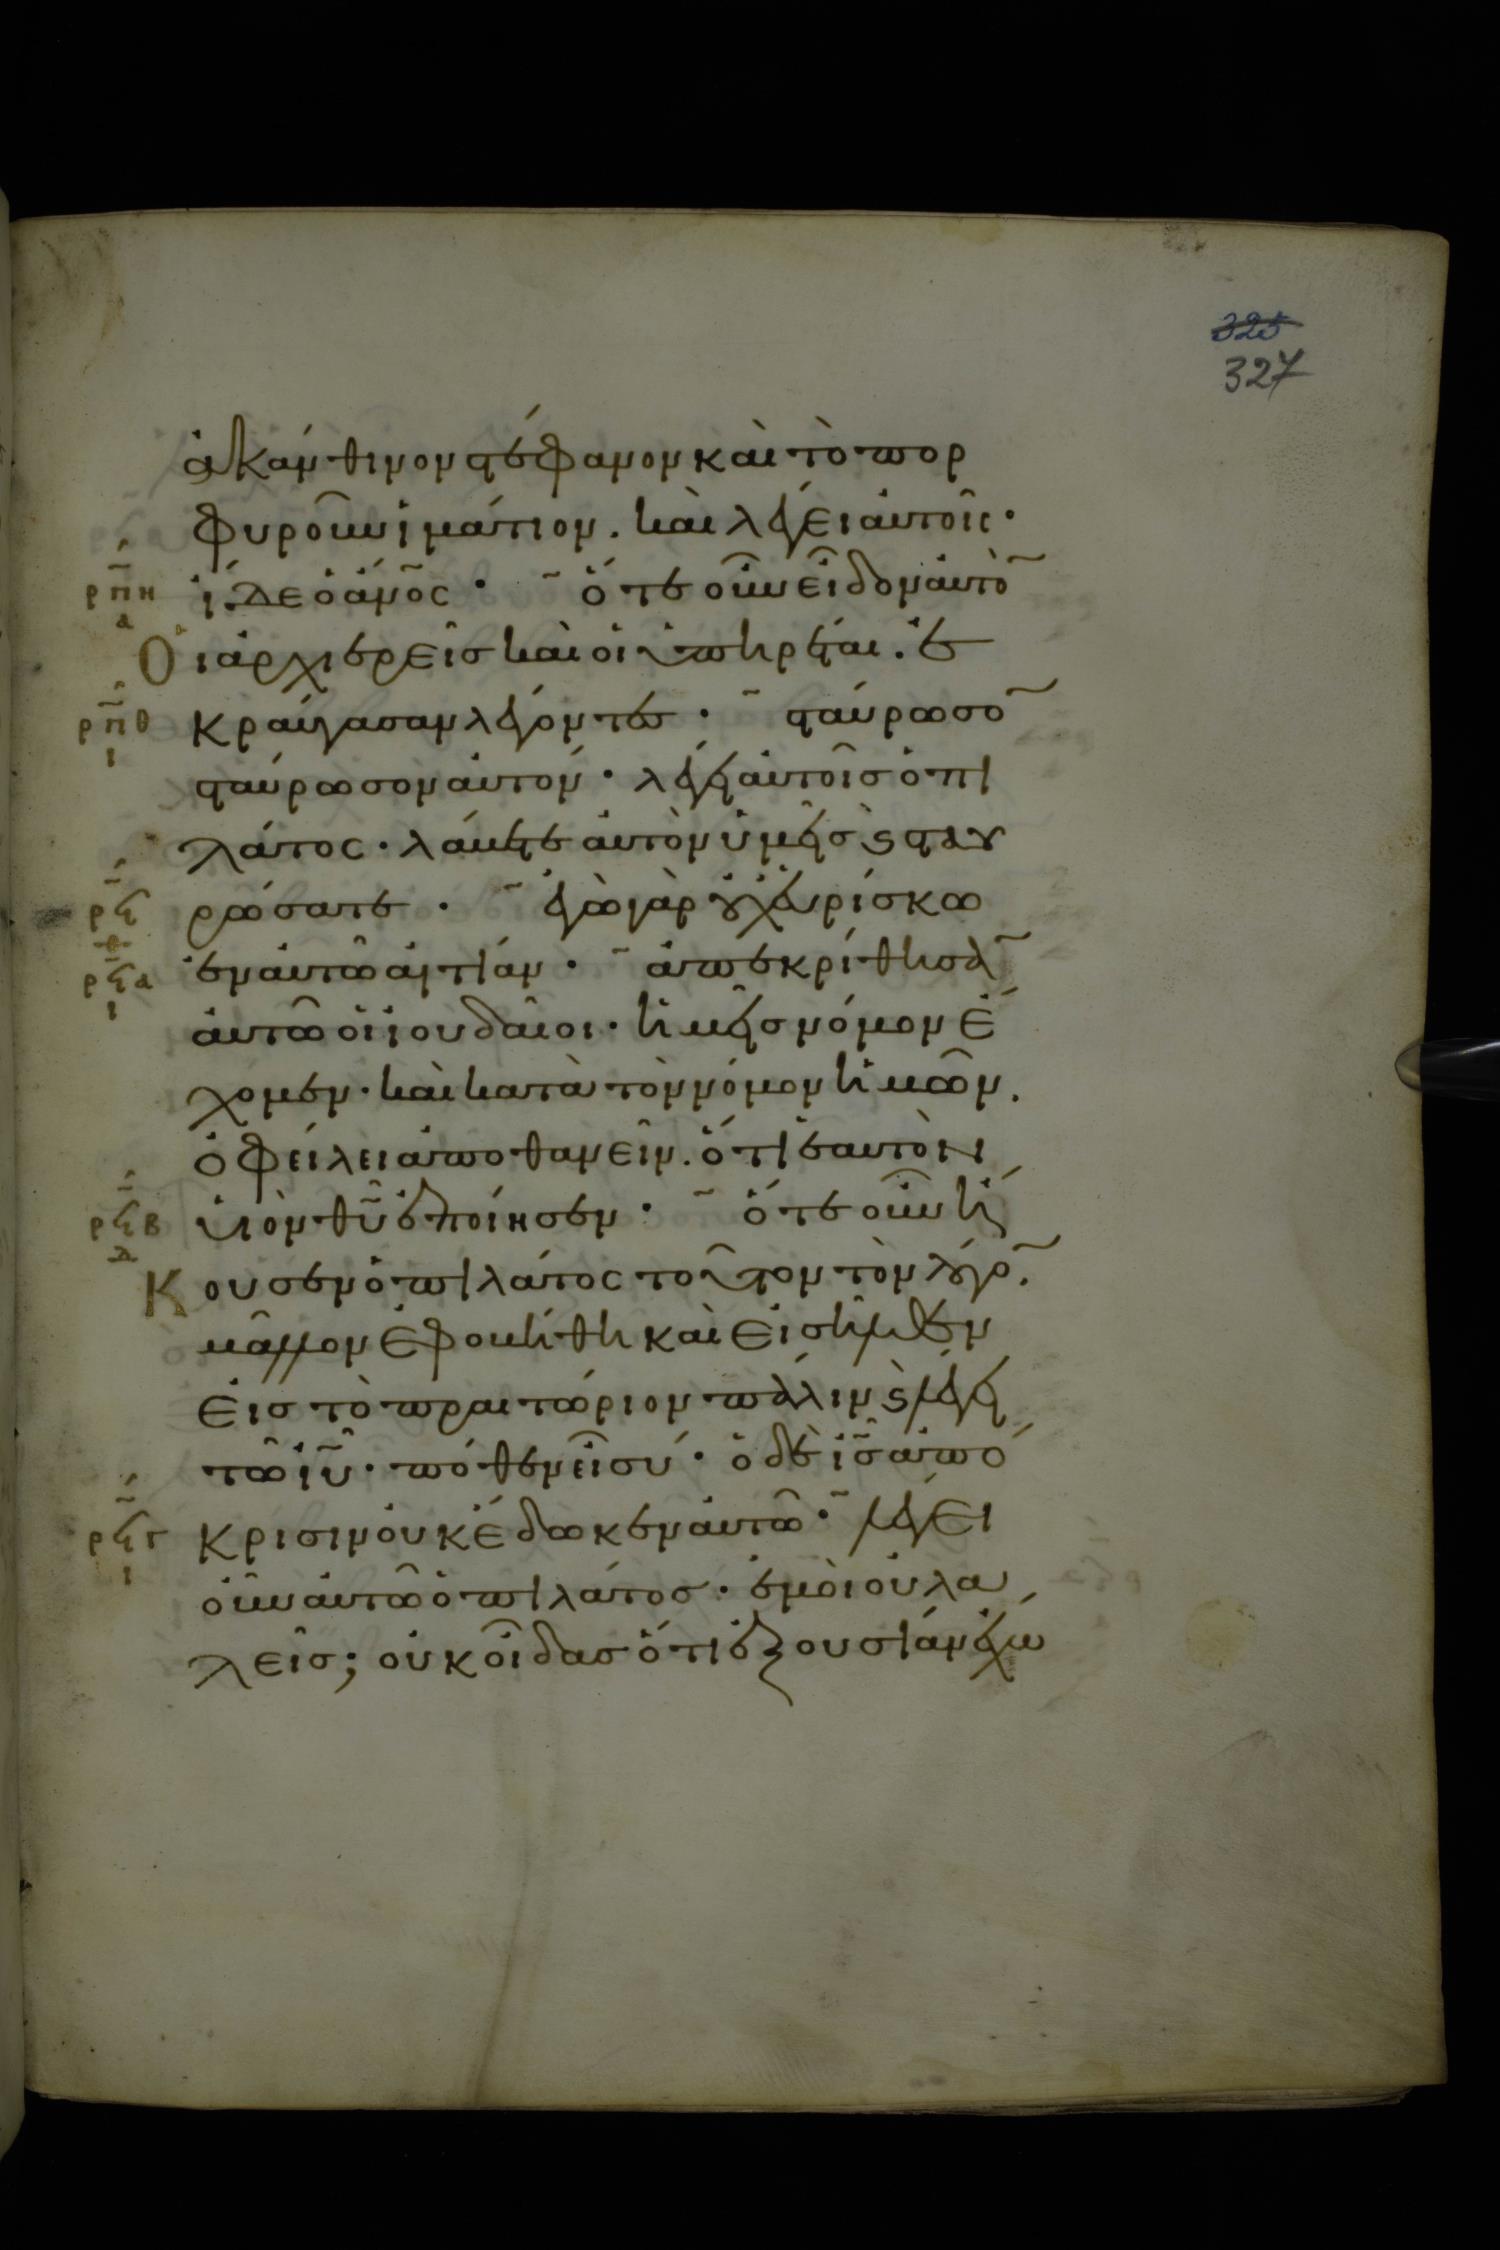 325
327
ἀκάνθινον στέφανον καὶ τὸ πορ
φυροῦν ἱμάτιον. καὶ λέγει αὐτοῖς·
ρπη ἴδε ὁ ἄν̅ο̅ς· ὅτε οὖν εἶδον αὐτὸ̅
α
Οἱ ἀρχιερεῖς καὶ οἱ ὑπηρέται. ἐ
ρπθ κραύγασαν λέγοντες· σταύρωσο̅
ι
σταύρωσον αὐτόν· λέγει αὐτοῖς ὁ πι
λάτος· λάβετε αὐτὸν ὑμεῖς ϗ σταυ
ρϟ ρώσατε· ἐγὼ γὰρ οὐχ εὑρίσκω
θ
ρϟα ἐν αὐτῶ αἰτίαν· ἀπεκρίθησα̅
ι
αὐτῶ οἱ ἰουδαῖοι· ἡμεῖς νόμον ἔ
χομεν· καὶ κατὰ τὸν νόμον ἡμῶν.
ὀφείλει ἀποθανεῖν. ὅτι ἑαυτὸν
ρϟβ υἱὸν θ̅υ̅ ἐποίησεν· ὅτε οὖν ἤ
δ
Κουσεν ὁ πιλάτος τοῦτον τὸν λόγο̅.
μᾶλλον ἐφοβήθη καὶ εἰσῆλθεν
εἰς τὸ πραιτώριον πάλιν ϗ λέγει
τῶ ἰ̅υ̅· πόθεν εἶ σύ· ὁ δὲ ἰ̅ς̅ ἀπό
ρϟγ κρισιν οὐκ ἔδωκεν αὐτῶ· λέγει
ι
οὖν αὐτῶ ὁ πιλάτος· ἐμοὶ οὐ λα
λεῖς; οὐκ οἶδας ὅτι ἐξουσίαν ἔχω